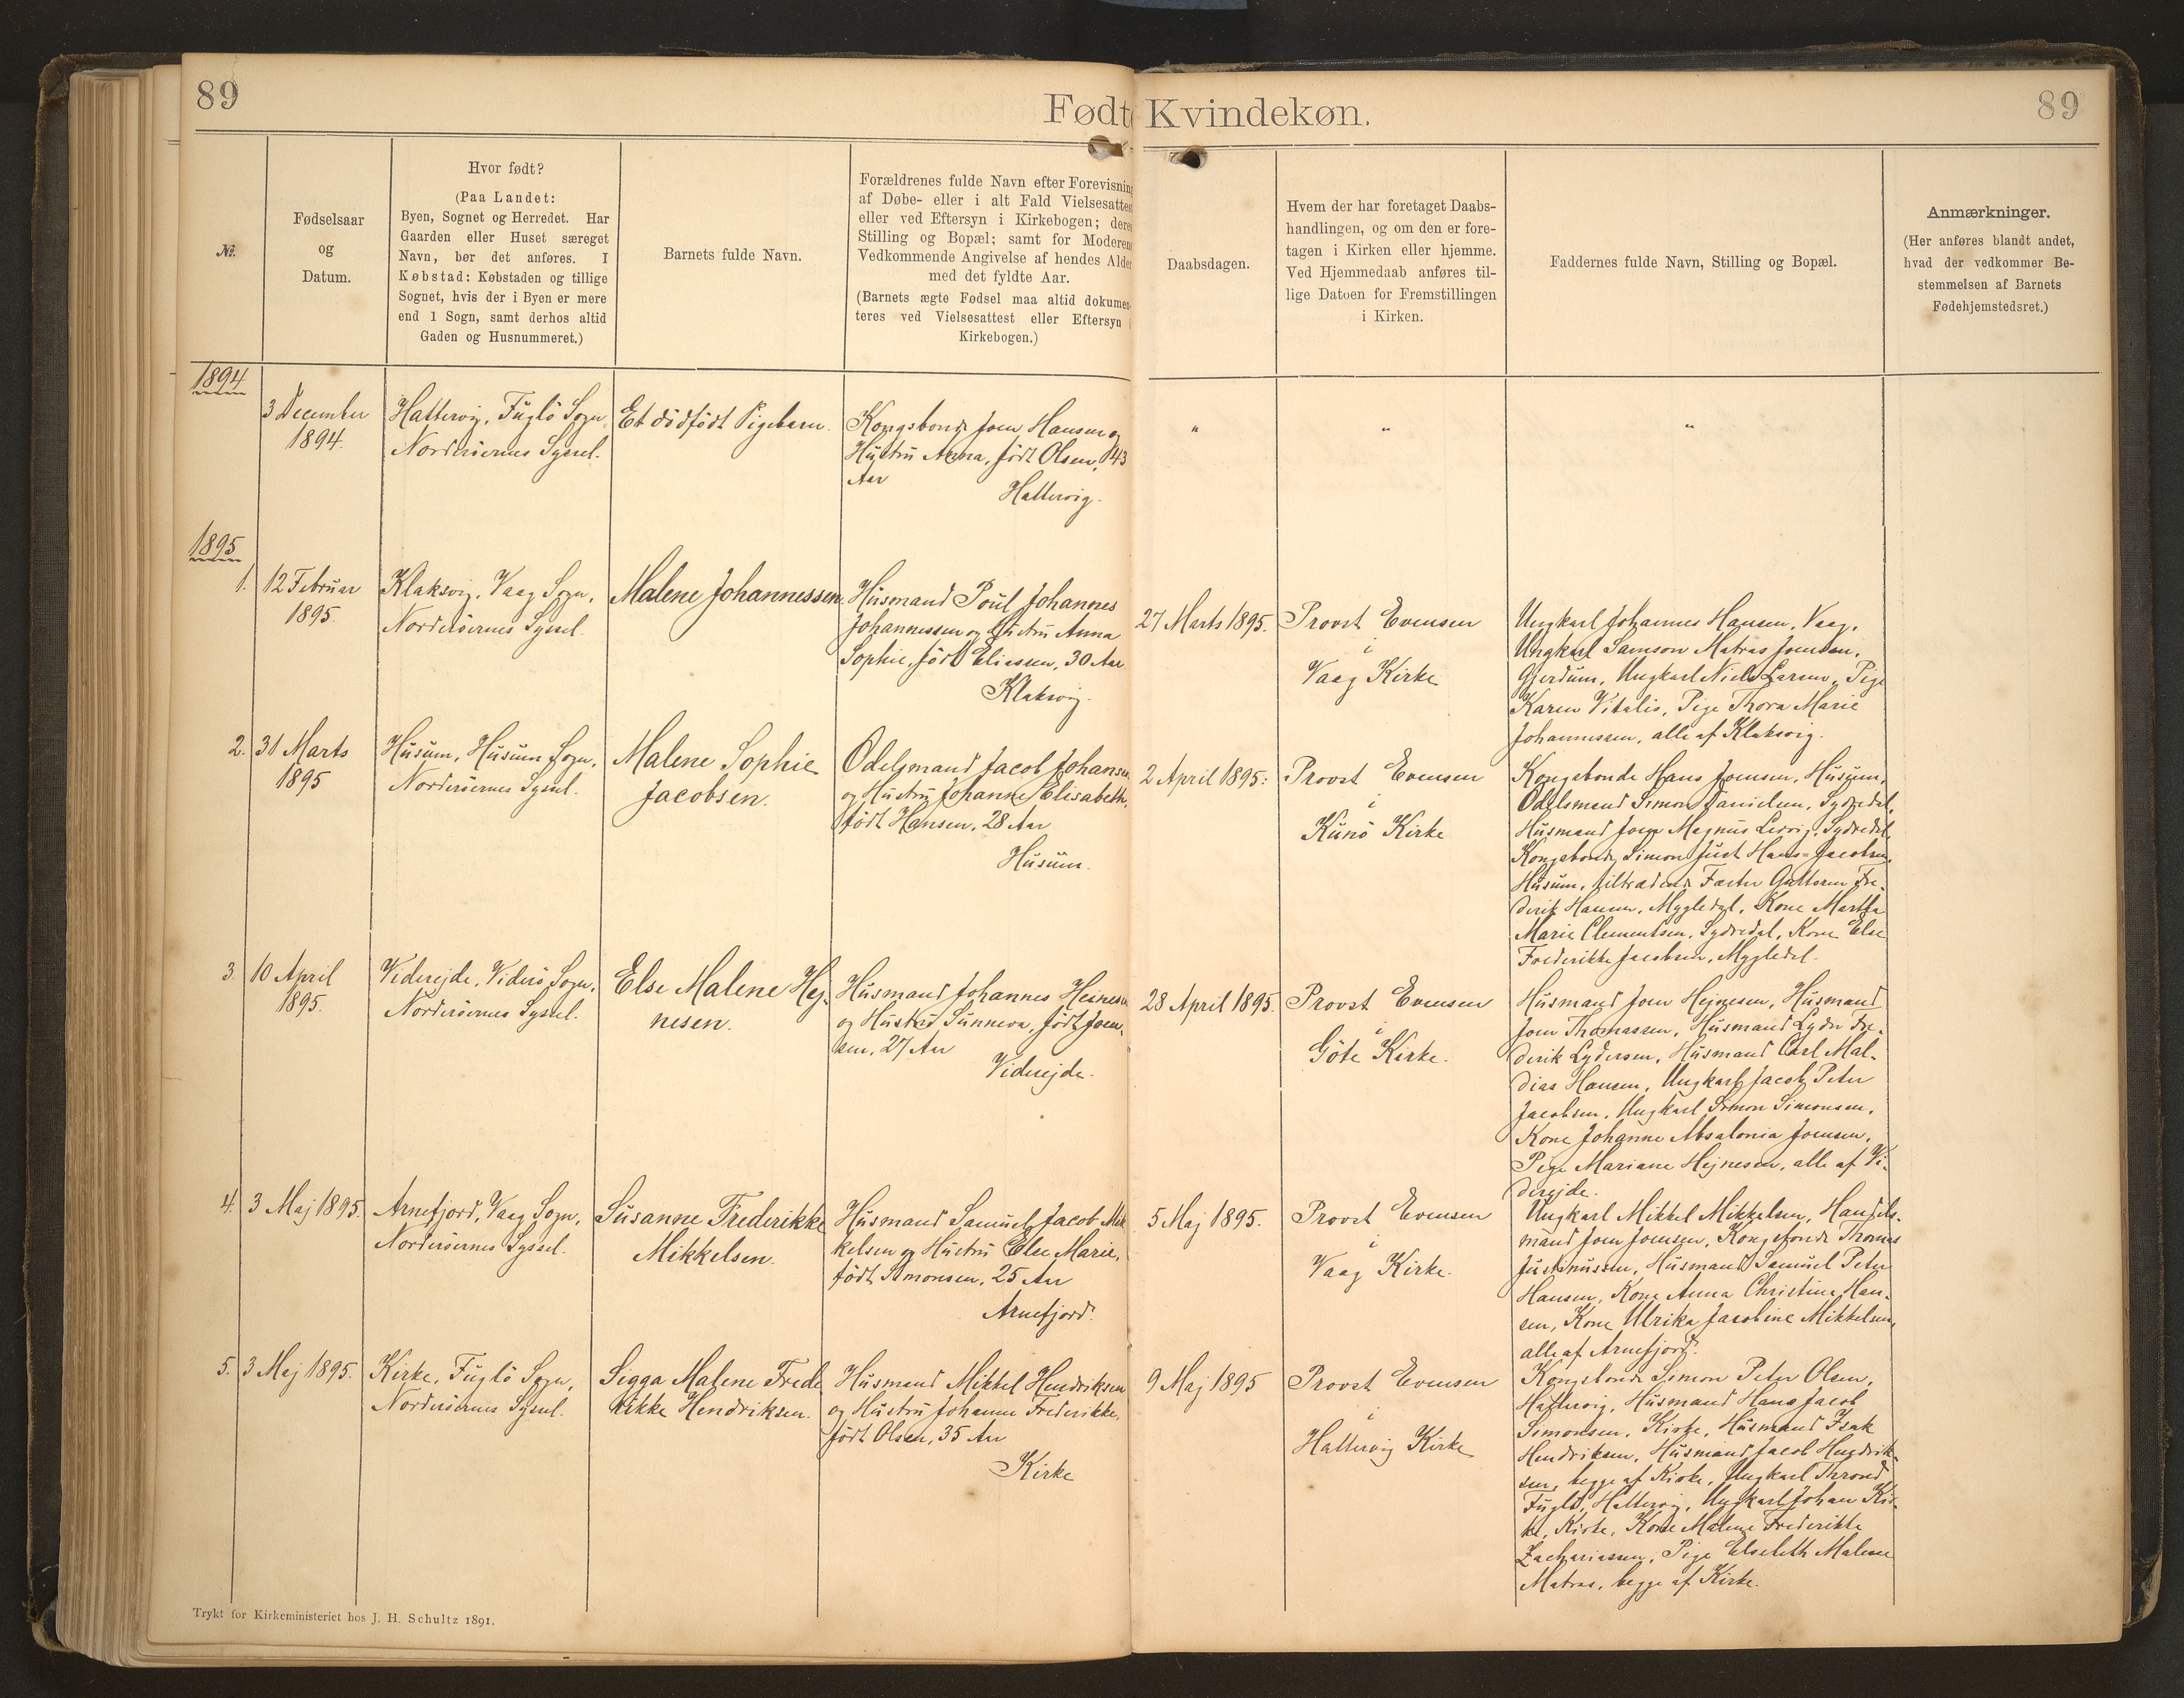 89
Fødte Kvindekøn.
89
№.
Fødselsaar
og
Datum.
Hvor født?
(Paa Landet:
Byen, Sognet og Herredet. Har
Gaarden eller Huset særeget
Navn, bør det anføres. I
Købstad: Købstaden og tillige
Sognet, hvis der i Byen er mere
end 1 Sogn, samt derhos altid
Gaden og Husnummeret.)
Barnets fulde Navn.
Forældrenes fulde Navn efter Forevisning
af Døbe- eller i alt Fald Vielsesattest
eller ved Eftersyn i Kirkebogen; deres
Stilling og Bopæl; samt for Moderens
Vedkommende Angivelse af hendes Alder
med det fyldte Aar.
(Barnets ægte Fødsel maa altid dokumen-
teres ved Vielsesattest eller Eftersyn i
Kirkebogen.)
Daabsdagen.
Hvem der har foretaget Daabs-
handlingen, og om den er fore-
tagen i Kirken eller hjemme.
Ved Hjemmedaab anføres til-
lige Datoen for Fremstillingen
i Kirken.
Faddernes fulde Navn, Stilling og Bopæl.
Anmærkninger.
(Her anføres blandt andet,
hvad der vedkommer Be-
stemmelsen af Barnets
Fødehjemstedsret.)
1894
3 December
1894.
Hattervig, Fuglö Sogn,
Norderöernes Syssel.
Et dödfödt Pigebarn.
Kongsbonde Joen Hansen og
Hustru Anna, födt Olsen, 43
Aar
Hattervig.
"
"
"
1895
1.
12 Februar
1895.
Klaksvig, Vaag Sogn,
Norderöernes Syssel.
Malene Johannessen
Husmand Poul Johannes
Johannessen og Hustru Anna
Sophie, födt Eliassen, 30 Aar
Klaksvig.
27 Marts 1895.
Provst Evensen
i
Vaag Kirke
Ungkarl Johannes Hansen, Vaag,
Ungkarl Samson Matras Joensen,
Gjerdum, Ungkarl Niels Larsen, Pige
Karen Vitalis, Pige Thora Marie
Johannessen, alle af Klaksvig.
2.
31 Marts
1895
Husum, Husum Sogn,
Norderöernes Syssel.
Malene Sophie
Jacobsen.
Odelsmand Jacob Johansen
og Hustru Johanne Elisabeth,
födt Hansen, 28 Aar
Husum.
2 April 1895.
Provst Evensen
i
Kunö Kirke
Kongsbonde Hans Joensen, Husum,
Odelsmand Simon Danielsen, Sydredal,
Husmand Joen Magnus Lervig, Sydredal,
Kongsbonde Simon Just Hans-Jacobsen,
Husum, tiltrædende Fæster Guttorm Fre-
derik Hansen, Mygledal, Kone Martha
Marie Clementsen, Sydredal, Kone Else
Frederikke Jacobsen, Mygledal.
3.
10 April
1895.
Viderejde, Viderö Sogn,
Norderöernes Syssel.
Else Malene Hej-
nesen.
Husmand Johannes Heinesen
og Hustru Sunneva, födt Joen-
sen, 27 Aar
Viderejde.
28 April 1895.
Provst Evensen
i
Göte Kirke.
Husmand Joen Hejnesen, Husmand
Joen Thomassen, Husmand Lyder Fre-
derik Lydersen, Husmand Carl Mal-
dias Hansen, Ungkarl Jacob Peter
Jacobsen, Ungkarl Simon Simonsen,
Kone Johanne Absalonia Joensen,
Pige Mariane Hejnesen, alle af Vi-
derejde.
4.
3 Maj 1895.
Arnefjord, Vaag Sogn,
Norderöernes Syssel.
Susanne Frederikke
Mikkelsen.
Husmand Samuel Jacob Mik-
kelsen og Hustru Else Marie,
födt Simonsen, 25 Aar
Arnefjord.
5 Maj 1895.
Provst Evensen
i
Vaag Kirke.
Ungkarl Mikkel Mikkelsen, Handels-
mand Joen Joensen, Kongsbonde Thomas
Justinussen, Husmand Samuel Peter
Hansen, Kone Anna Christine Han-
sen, Kone Ulrika Jacobine Mikkelsen,
alle af Arnefjord.
5.
3 Maj 1895.
Kirke, Fuglö Sogn,
Norderöernes Syssel.
Sigga Malene Frede
rikke Hendriksen.
Husmand Mikkel Hendriksen
og Hustru Johanne Frederikke,
födt Olsen, 35 Aar
Kirke
9 Maj 1895
Provst Evensen
i
Hattervig Kirke
Kongsbonde Simon Peter Olsen,
Hattervig, Husmand Hans Jacob
Simonsen, Kirke, Husmand Isak
Hendriksen, Husmand Jacob Hendrik-
sen, begge af Kirke, Ungkarl Thrond
Fuglö, Hattervig, Ungkarl Johan Kir-
ke, Kirke, Kone Malene Frederikke
Zachariassen, Pige Elsebeth Malene
Matras, begge af Kirke.
Trykt for Kirkeministeriet hos J. H. Schultz 1891.